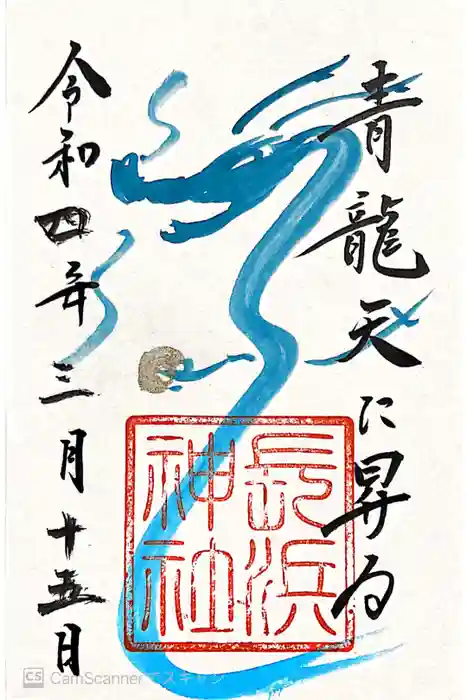 青龍天に昇る
長浜
神社
令和四年三月十五日
CS CamScanner でスキャン